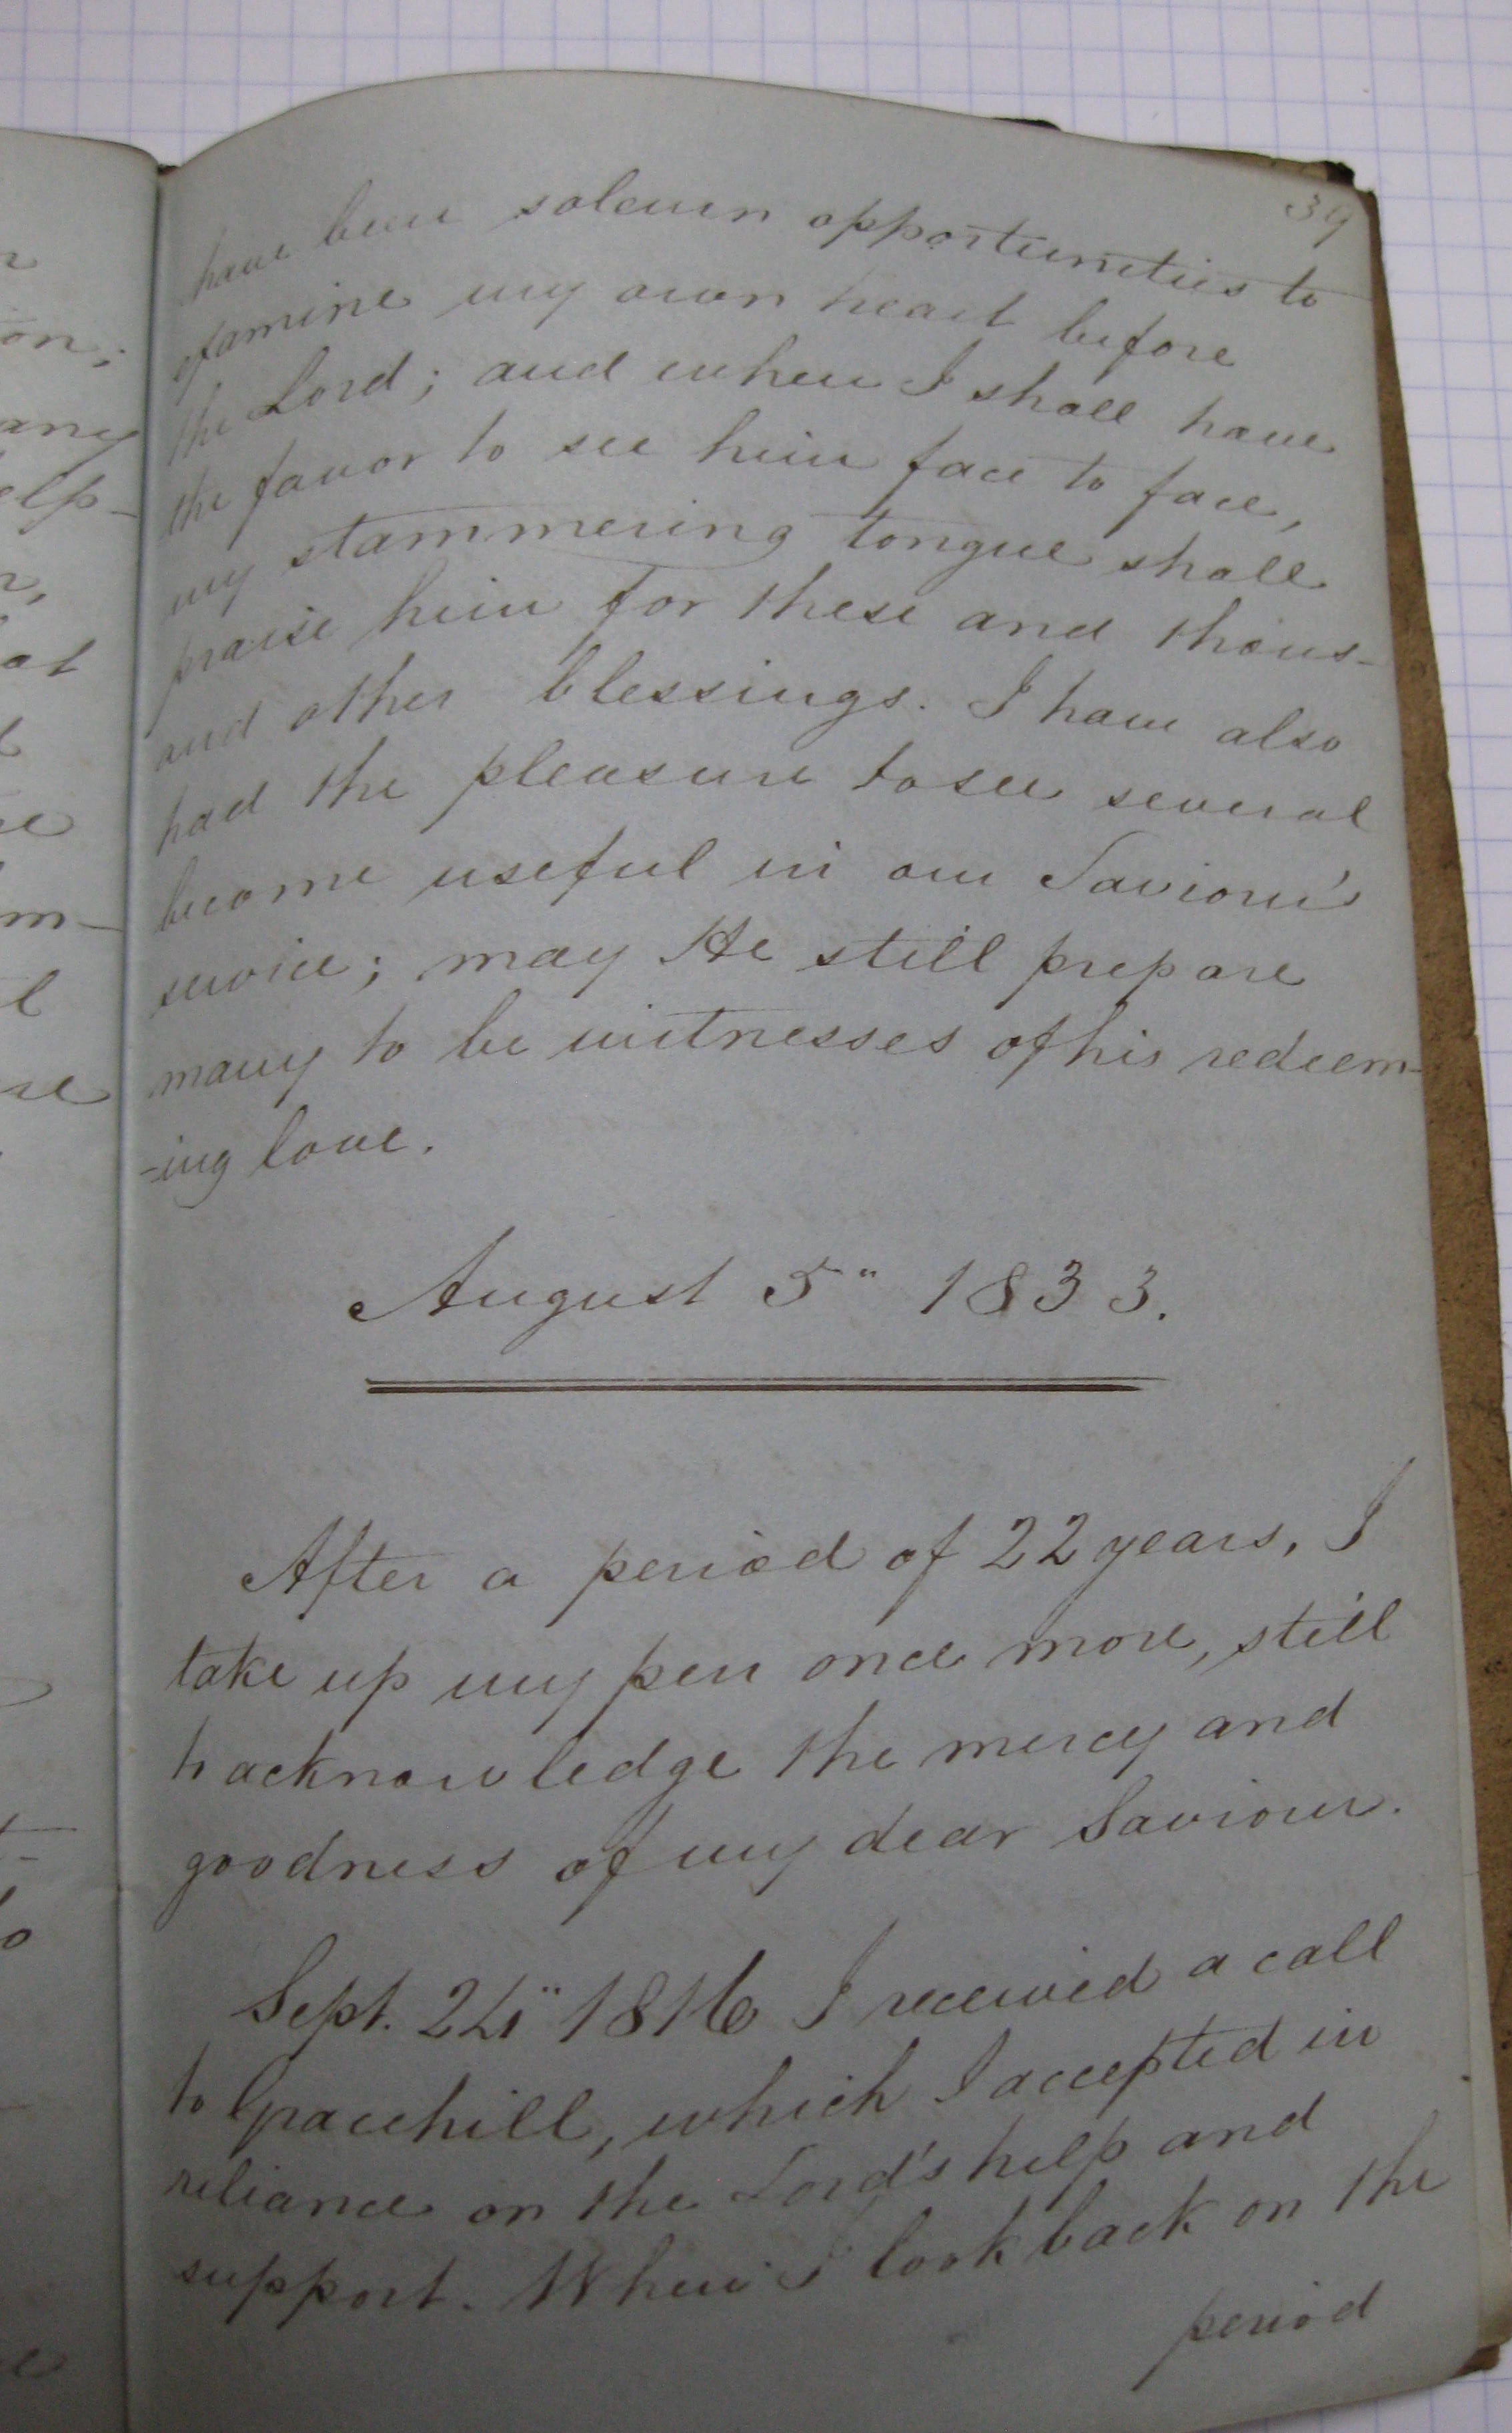 39
have been solemn opportunities to
examine my own heart before
the Lord; and when I shall have
the favor to see him face to face,
my stammering tongue shall
praise him for these and thous-
and other blessings. I have also
had the pleasure to see several
become useful in our Saviour's
service; may He still prepare
many to be witnesses of his redeem-
-ing love.
August 5" 1833.
After a period of 22 years, I
take up my pen once more, still
to acknowledge the mercy and
goodness of my dear Saviour.
Sept. 24" 1816 I received a call
to Gracehill, which I accepted in
reliance on the Lord's help and
support. When I look back on the
period